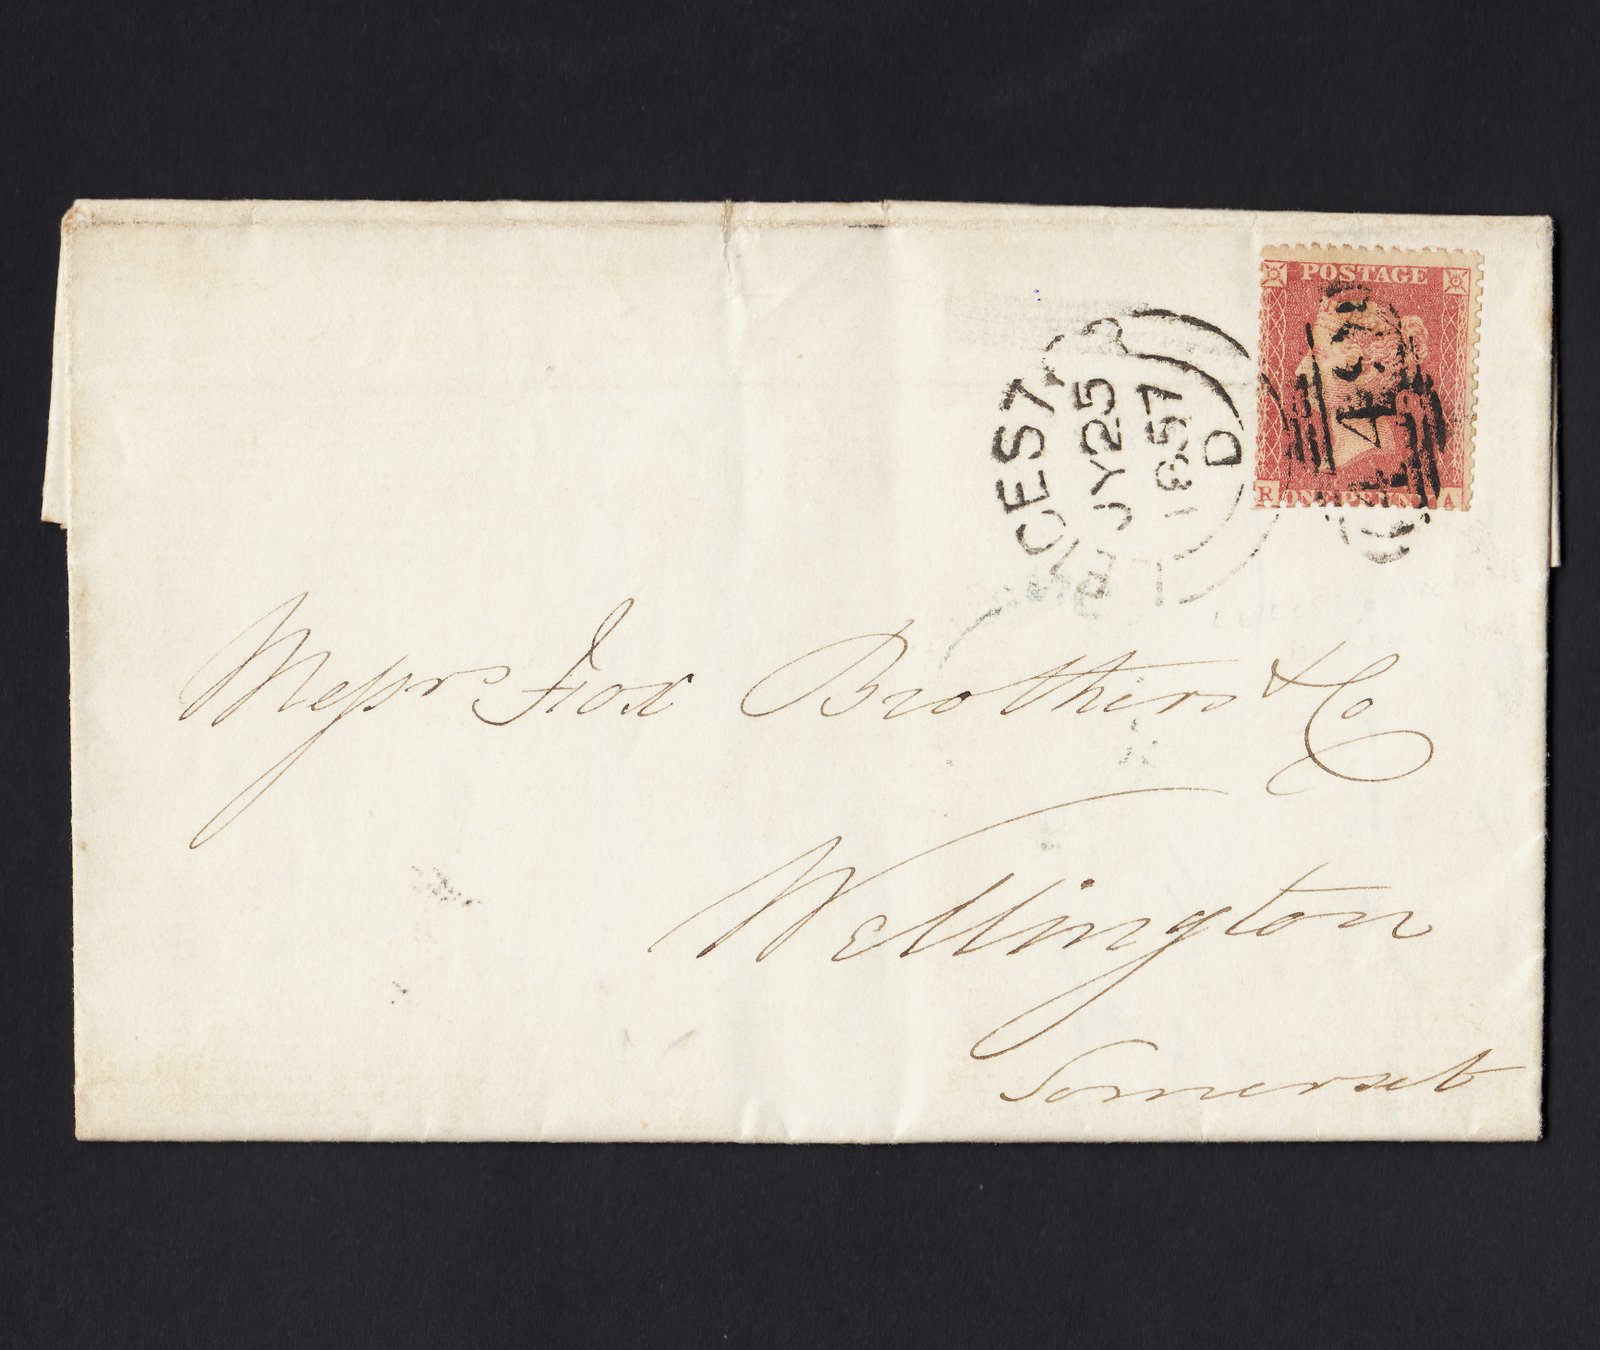 POSTAGE
R ONE PENNY A
JY 25
1857
D
449
Messrs Fox Brothers & Co
Wellington
Somerset